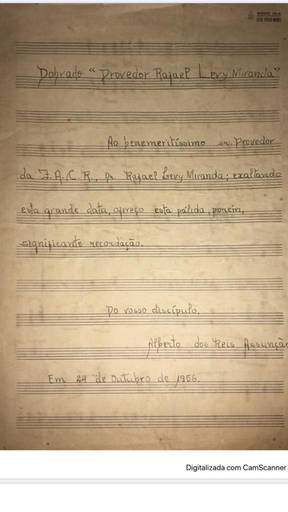 Dobrado "Provedor Rafael Levy Miranda"
Ao benemeritíssimo snr. Provedor
da F.A.C.R., Dr. Rafael Levy Miranda; exaltando
esta grande data, ofereço esta pálida, porém,
significante recordação.
Do vosso discípulo,
Alberto dos Reis Assunção
Em 24 de Outubro de 1956.
Digitalizada com CamScanner